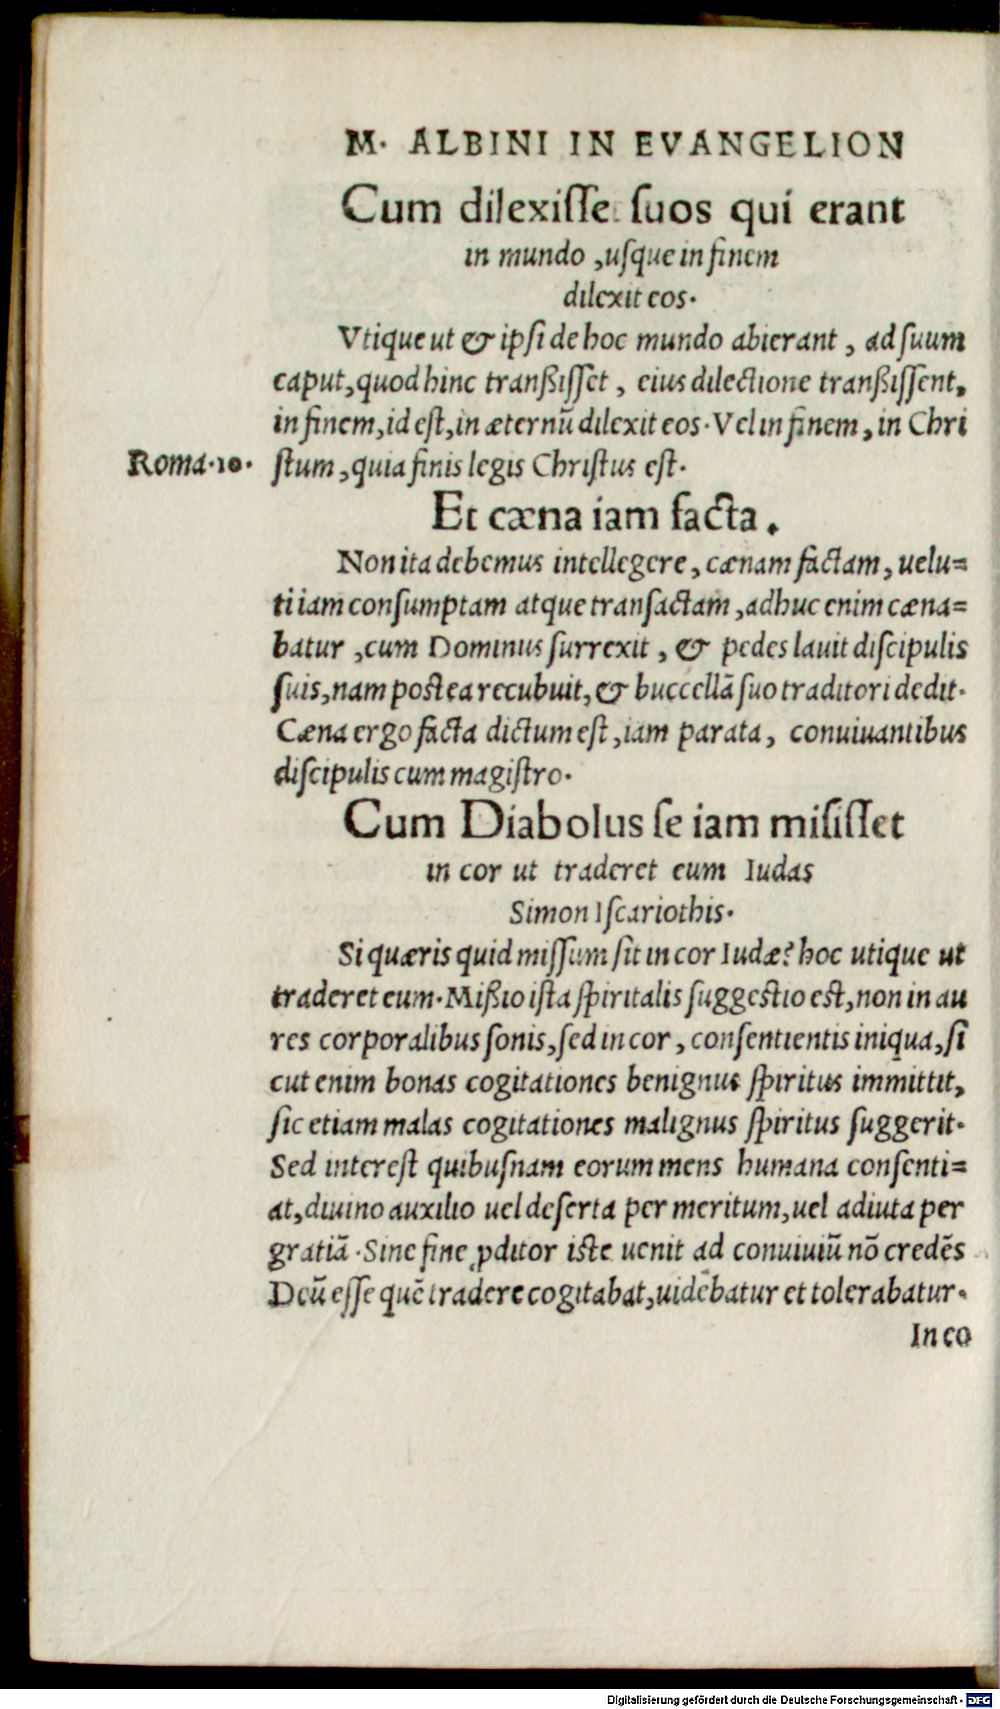 M. ALBINI IN EVANGELION
Cum dilexisſe ſuos qui erant
in mundo, uſque in finem
dilexit eos.
Vtique ut & ipſi de hoc mundo abierant, ad ſuum
caput, quod hinc tranßiſſet, eius dilectione tranßiſſent,
in finem, id eſt, in æternũ dilexit eos. Vel in finem, in Chri
Roma. 10. ſtum, quia finis legis Chriſtus eſt.
Et cæna iam facta.
Non ita debemus intellegere, cænam factam, uelu=
ti iam conſumptam atque tranſactam, adhuc enim cæna=
batur, cum Dominus ſurrexit, & pedes lauit diſcipulis
ſuis, nam postea recubuit, & buccellã ſuo traditori dedit.
Cæna ergo facta dictum eſt, iam parata, conuiuantibus
diſcipulis cum magiſtro.
Cum Diabolus ſe iam miſiſſet
in cor ut traderet eum Iudas
Simon Iſcariothis.
Si quæris quid miſſum ſit in cor Iudæ? hoc utique ut
traderet eum. Mißio iſta ſpiritalis ſuggestio est, non in au
res corporalibus ſonis, ſed in cor, conſentientis iniqua, ſi
cut enim bonas cogitationes benignus ſpiritus immittit,
ſic etiam malas cogitationes malignus ſpiritus ſuggerit.
Sed intereſt quibuſnam eorum mens humana conſenti=
at, diuino auxilio uel deſerta per meritum, uel adiuta per
gratiã. Sine fine ꝓditor iste uenit ad conuiuiũ nõ credẽs
Deũ eſſe quẽ tradere cogitabat, uidebatur et tolerabatur.
In co
Digitalisierung gefördert durch die Deutsche Forschungsgemeinschaft · DFG